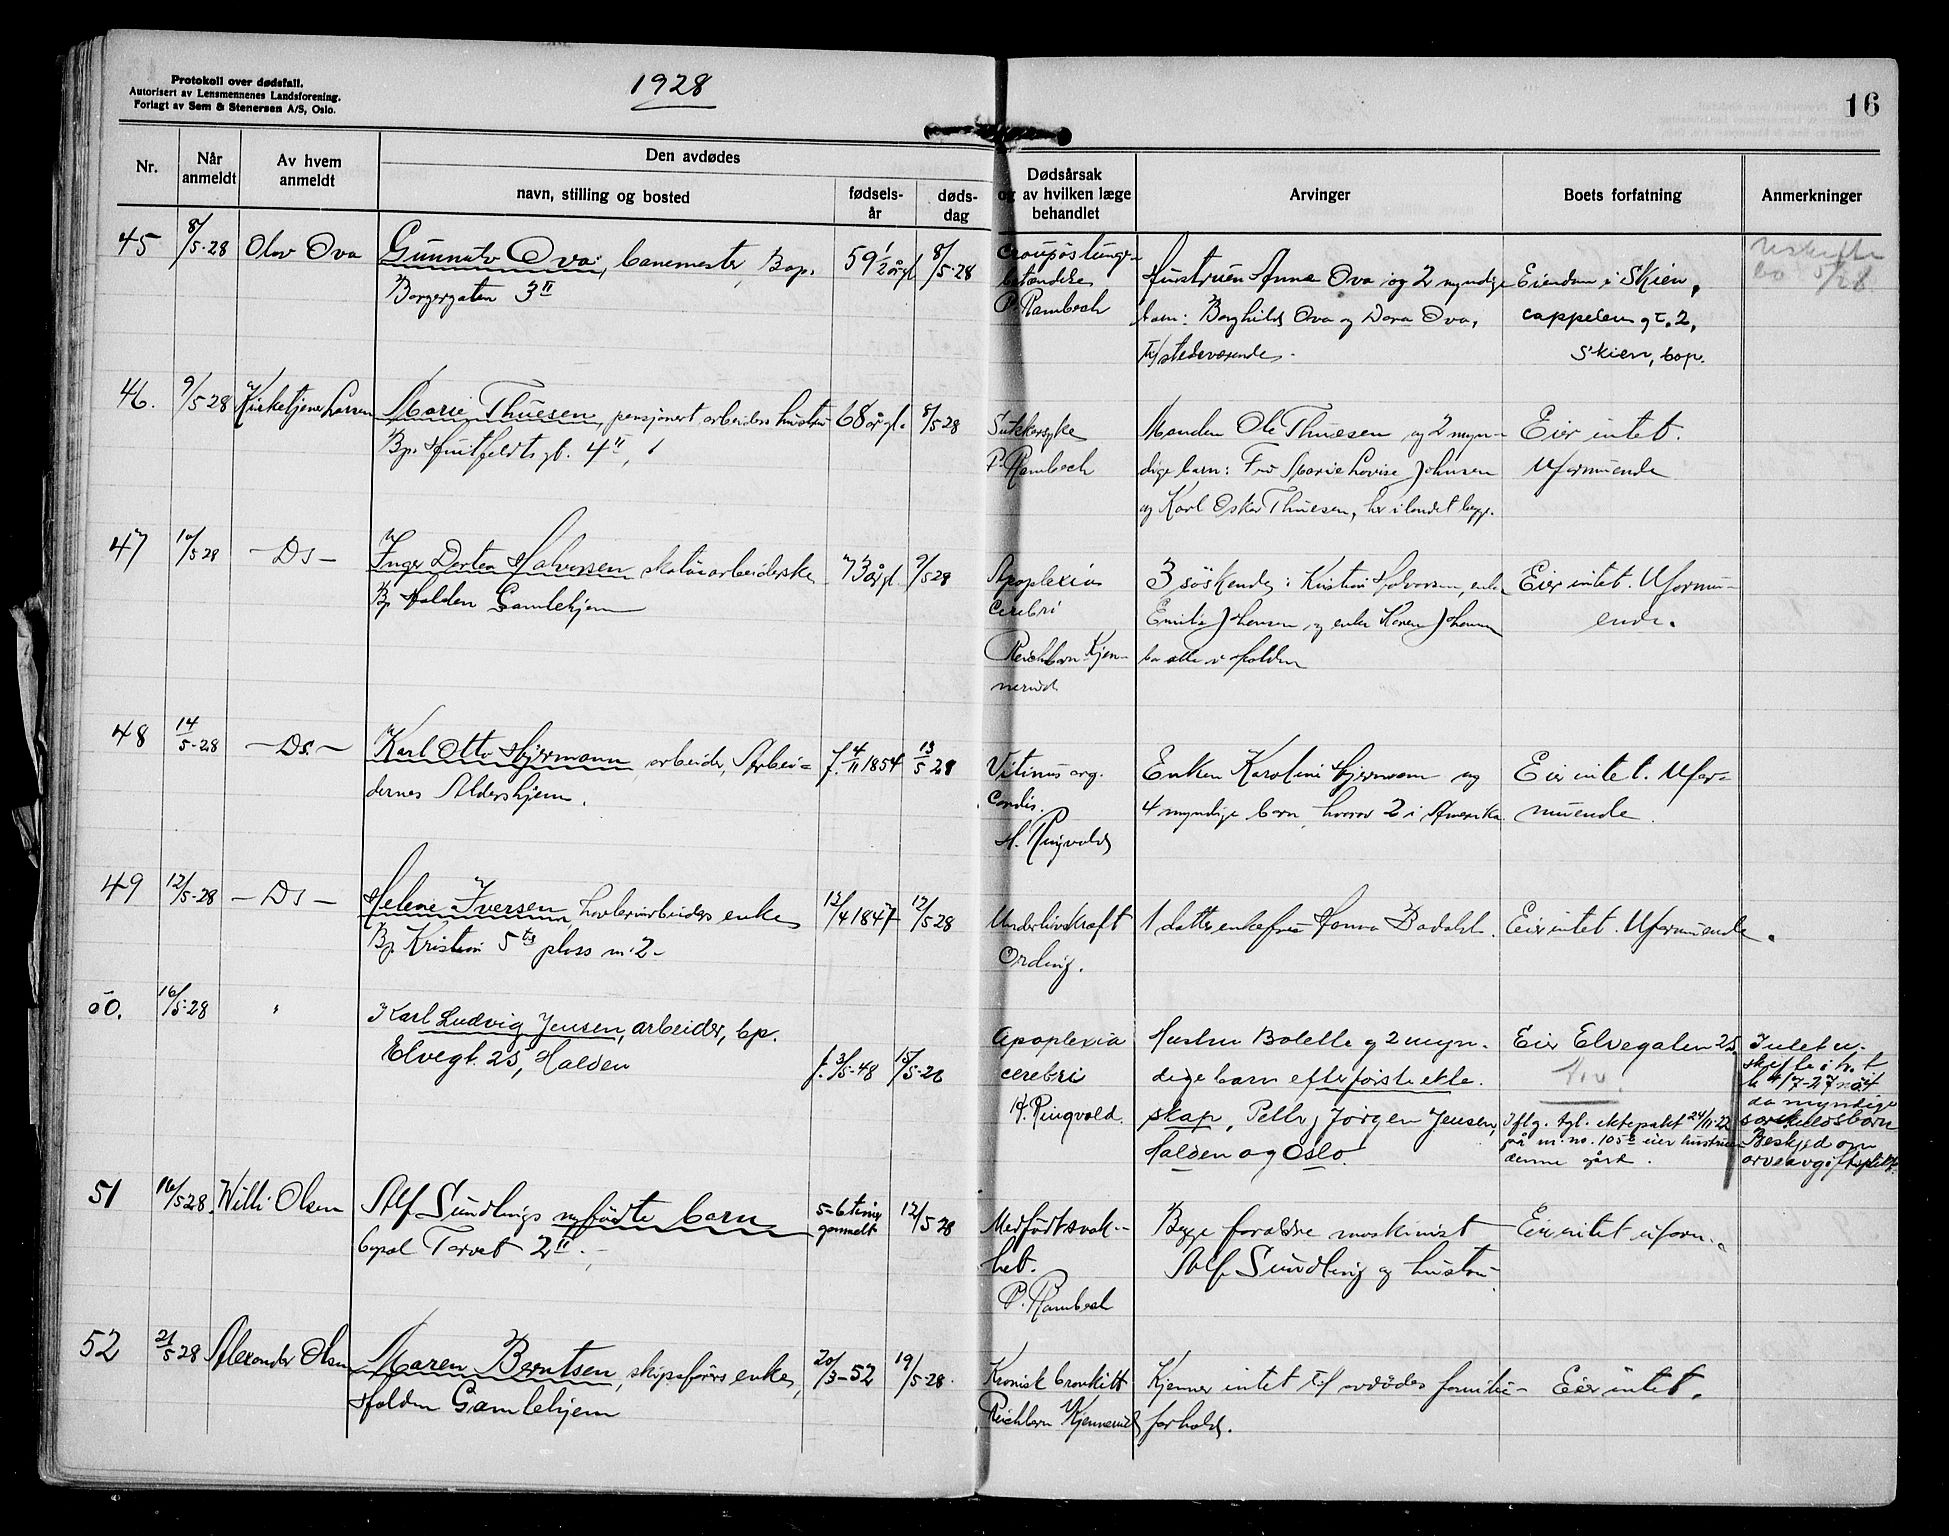 Protokoll over dødsfall.
Autorisert av Lensmennenes Landsforening.
Forlagt av Sem & Stenersen A/S, Oslo.
1928
16
Nr.
Når anmeldt
Av hvem anmeldt
Den avdødes
navn, stilling og bosted
fødsels-år
døds-dag
Dødsårsak og av hvilken læge behandlet
Arvinger
Boets forfatning
Anmerkninger
45
8/5-28
Olav Ova
Gunnulv Ova, banemester, Bop.
Borgergaten 3II
59 1/2 år gl.
8/5-28
Croupøs lunge-
betændelse
P. Rambech
Hustruen Anna Ova og 2 myndige
barn: Borghild Ova og Dora Ova,
tilstedeværende.
Eiendom i Skien,
Cappelen gt. 2,
Skien, bop.
Uskifte
bo 5/28
46.
9/5 28
Kirketjener Larsen
Marie Thuesen, pensjonert arbeiders hustru
Bp. Huitfeldts gt. 4II,
68 år gl.
8/5 28
Sukkersyke
P. Rambech
Manden Ole Thuesen og 2 myn-
dige barn: Fru Marie Lovise Johnsen
og Karl Oskar Thuesen, her i landet begge.
Eier intet.
Uformuende
47
10/5 28
- Ds -
Inger Dortea Halvorsen skotöiarbeiderske
Bp Halden Gamlehjem
73 år gl.
9/5 28
Apoplexia
Cerebri
Reichborn Kjen-
nerud
3 söskende: Kristian Halvorsen, enke
Emilie Johansen, og enke Karen Johansen
bor alle i Halden
Eier intet. Uformu-
ende.
48
14/5-28
- Ds. -
Karl Otto Hjermann, arbeider, Arbei-
dernes Aldershjem.
f. 4/11 1854
13/5 28
Vitium org.
Cordis.
H. Ringvold
Enken Karoline Hjermann og
4 myndige barn, hvorav 2 i Amerika
Eier intet. Ufor-
muende.
49
12/5-28
- Ds -
Helene Iversen, høvleriarbeiders enke
Bp. Kristian 5tes plass nr. 2-
12/4 1847
12/5-28
Underlivskræft
Ording.
1 datter enkefru Hanna Bodahl.
Eier intet. Uformuende.
50.
16/5-28
"
Karl Ludvig Jensen, arbeider, bp.
Elvegt. 25, Halden
f. 3/5-48
15/5-28
Apoplexia
cerebri
H. Ringvold.
Hustru Bolette og 2 myn-
dige barn efter første ekte-
skap, Petter og Jørgen Jensen,
Halden og Oslo.
Eier Elvegaten 25
Iflg. tgl. ektepakt 24/11-22
på m. no. 105 eier hustruen
denne gård.
Intet u-
skifte i h. t.
l. 4/7-27 nor
da myndige
særkuldsbarn
Beskjed om
orveavgiftsplikt
51
16/5 28.
Willi Olsen
Alf Sundlings nyfødte barn
bopæl Torvet 2II
5-6 timer
gammelt
12/5 28
Medfödt svak-
het.
P. Rambech
Begge foreldre maskinist
Alf Sundling og hustru
Eier intet uform.
52
21/5 28
Alexander Olsen
Maren Berntsen, skipsförers enke,
Halden Gamlehjem
20/3-52
19/5-28.
Kronisk bronkitt
Reichborn Kjennerud
Kjenner intet til avdödes familie-
forhold.
Eier intet.